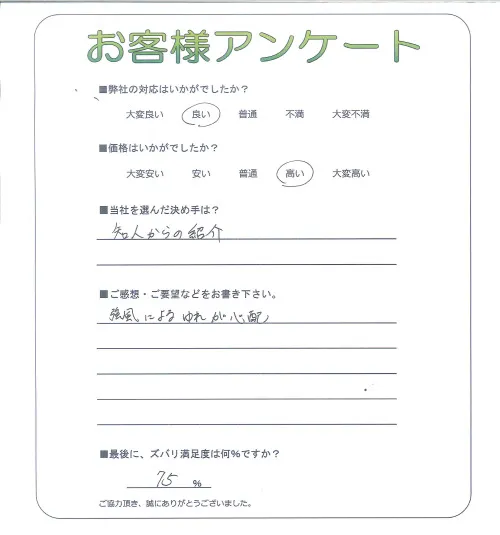 お客様アンケート
■弊社の対応はいかがでしたか？
大変良い 良い 普通 不満 大変不満
■価格はいかがでしたか？
大変安い 安い 普通 高い 大変高い
■当社を選んだ決め手は？
知人からの紹介
■ご感想・ご要望などをお書き下さい。
強風によるゆれが心配
■最後に、ズバリ満足度は何%ですか？
75 %
ご協力頂き、誠にありがとうございました。